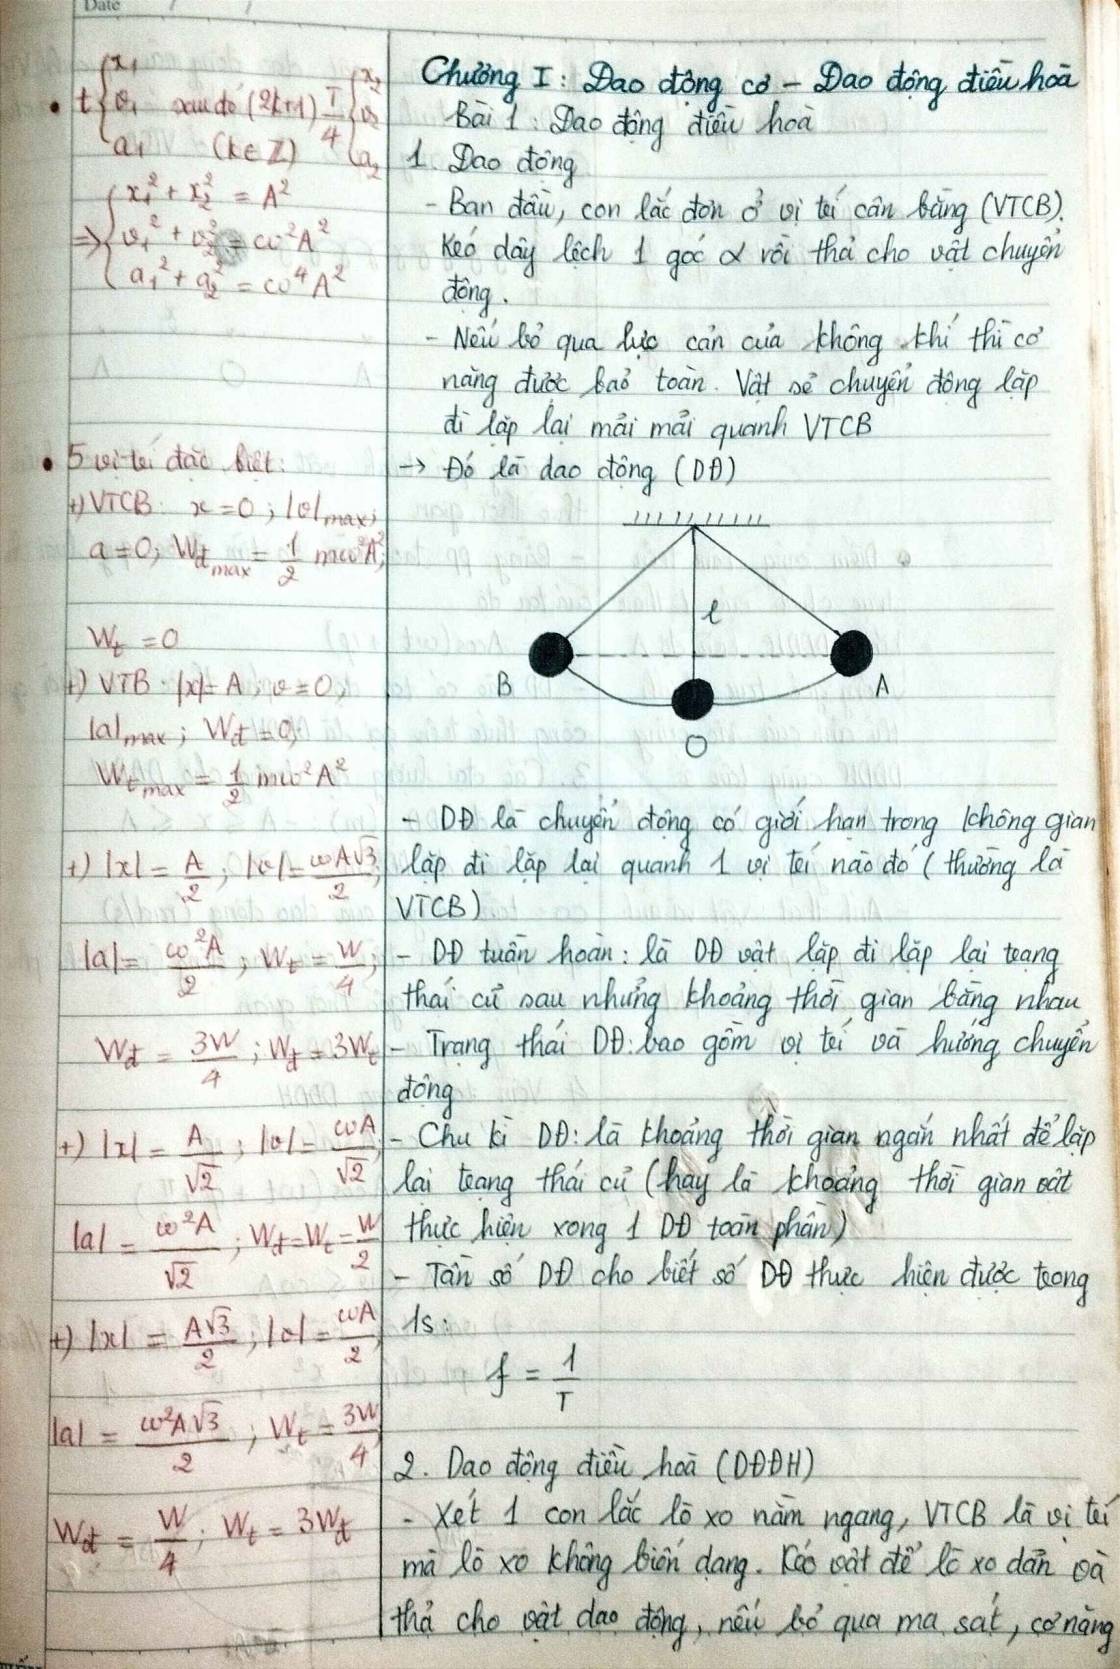 Date / /
• t { x₁ v₁ a₁ sau đó (2k+1) T/4 (k∈Z) { x₂ v₂ a₂
=> { x₁² + x₂² = A²
v₁² + v₂² = ω²A²
a₁² + a₂² = ω⁴A²
• 5 vị trí đặc biệt:
+) VTCB: x = 0 ; |v|max;
a = 0; Wđmax = 1/2 mω²A²;
Wt = 0
+) VTB: |x| = A ; v = 0;
|a|max ; Wđ = 0;
Wtmax = 1/2 mω²A²
+) |x| = A/2 ; |v| = ωA√3/2;
|a| = ω²A/2 ; Wt = W/4;
Wđ = 3W/4 ; Wđ = 3Wt
+) |x| = A/√2 ; |v| = ωA/√2;
|a| = ω²A/√2 ; Wđ = Wt = W/2
+) |x| = A√3/2 ; |v| = ωA/2;
|a| = ω²A√3/2 ; Wt = 3W/4
Wđ = W/4 ; Wt = 3Wđ
Chương I : Dao động cơ – Dao động điều hoà
Bài 1 : Dao động điều hoà
1. Dao động
- Ban đầu, con lắc đơn ở vị trí cân bằng (VTCB).
Kéo dây lệch 1 góc α rồi thả cho vật chuyển
động.
- Nếu bỏ qua lực cản của không khí thì cơ
năng được bảo toàn. Vật sẽ chuyển động lặp
đi lặp lại mãi mãi quanh VTCB
-> Đó là dao động (DĐ)
l
B
A
O
- DĐ là chuyển động có giới hạn trong không gian
lặp đi lặp lại quanh 1 vị trí nào đó (thường là
VTCB)
- DĐ tuần hoàn : là DĐ vật lặp đi lặp lại trạng
thái cũ sau những khoảng thời gian bằng nhau
- Trạng thái DĐ: bao gồm vị trí và hướng chuyển
động
- Chu kì DĐ: là khoảng thời gian ngắn nhất để lặp
lại trạng thái cũ (hay là khoảng thời gian vật
thực hiện xong 1 DĐ toàn phần)
- Tần số DĐ cho biết số DĐ thực hiện được trong
1s:
f = 1/T
2. Dao động điều hoà (DĐĐH)
- Xét 1 con lắc lò xo nằm ngang, VTCB là vị trí
mà lò xo không biến dạng. Kéo vật để lò xo dãn và
thả cho vật dao động, nếu bỏ qua ma sát, cơ năng